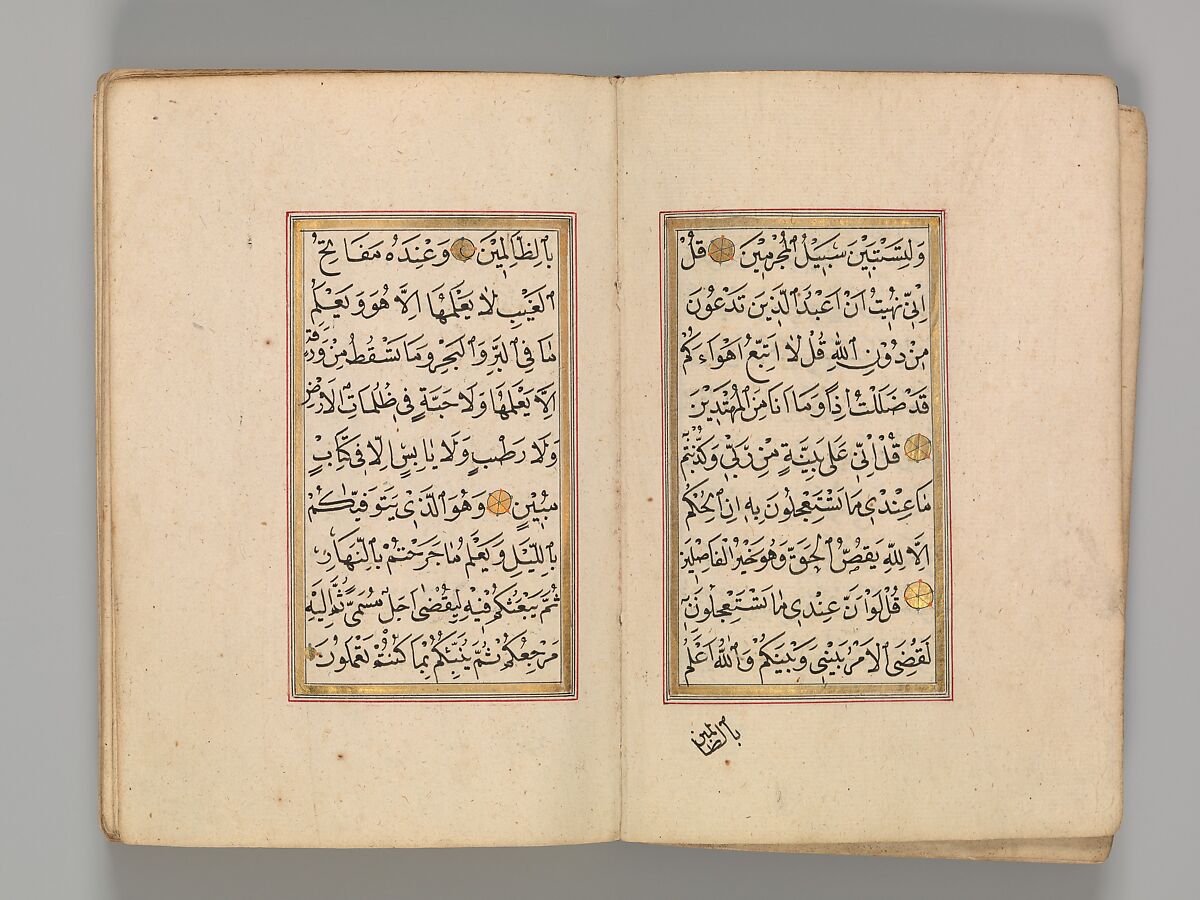 وَلِتَسْتَبِينَ سَبِيلُ الْمُجْرِمِينَ قُلْ
اِنِّي نُهِيتُ اَنْ اَعْبُدَ الَّذِينَ تَدْعُونَ
مِنْ دُونِ اللّٰهِ قُلْ لَا اَتَّبِعُ اَهْوَاءَكُمْ
قَدْ ضَلَلْتُ اِذًا وَمَا اَنَا مِنَ الْمُهْتَدِينَ
قُلْ اِنِّي عَلَى بَيِّنَةٍ مِنْ رَبِّي وَكَذَّبْتُمْ
مَا عِنْدِي مَا تَسْتَعْجِلُونَ بِهِ اِنِ الْحُكْمُ
اِلَّا لِلّٰهِ يَقُصُّ الْحَقَّ وَهُوَ خَيْرُ الْفَاصِلِينَ
قُلْ لَوْ اَنَّ عِنْدِي مَا تَسْتَعْجِلُونَ بِهِ
لَقُضِيَ الْاَمْرُ بَيْنِي وَبَيْنَكُمْ وَاللّٰهُ اَعْلَمُ
بالظالمين
بِالظَّالِمِينَ وَعِنْدَهُ مَفَاتِحُ
الْغَيْبِ لَا يَعْلَمُهَا اِلَّا هُوَ وَيَعْلَمُ
مَا فِي الْبَرِّ وَالْبَحْرِ وَمَا تَسْقُطُ مِنْ وَرَقَةٍ
اِلَّا يَعْلَمُهَا وَلَا حَبَّةٍ فِي ظُلُمَاتِ الْاَرْضِ
وَلَا رَطْبٍ وَلَا يَابِسٍ اِلَّا فِي كِتَابٍ
مُبِينٍ وَهُوَ الَّذِي يَتَوَفّٰيكُمْ
بِالَّيْلِ وَيَعْلَمُ مَا جَرَحْتُمْ بِالنَّهَارِ
ثُمَّ يَبْعَثُكُمْ فِيهِ لِيُقْضٰى اَجَلٌ مُسَمًّى ثُمَّ اِلَيْهِ
مَرْجِعُكُمْ ثُمَّ يُنَبِّئُكُمْ بِمَا كُنْتُمْ تَعْمَلُونَ